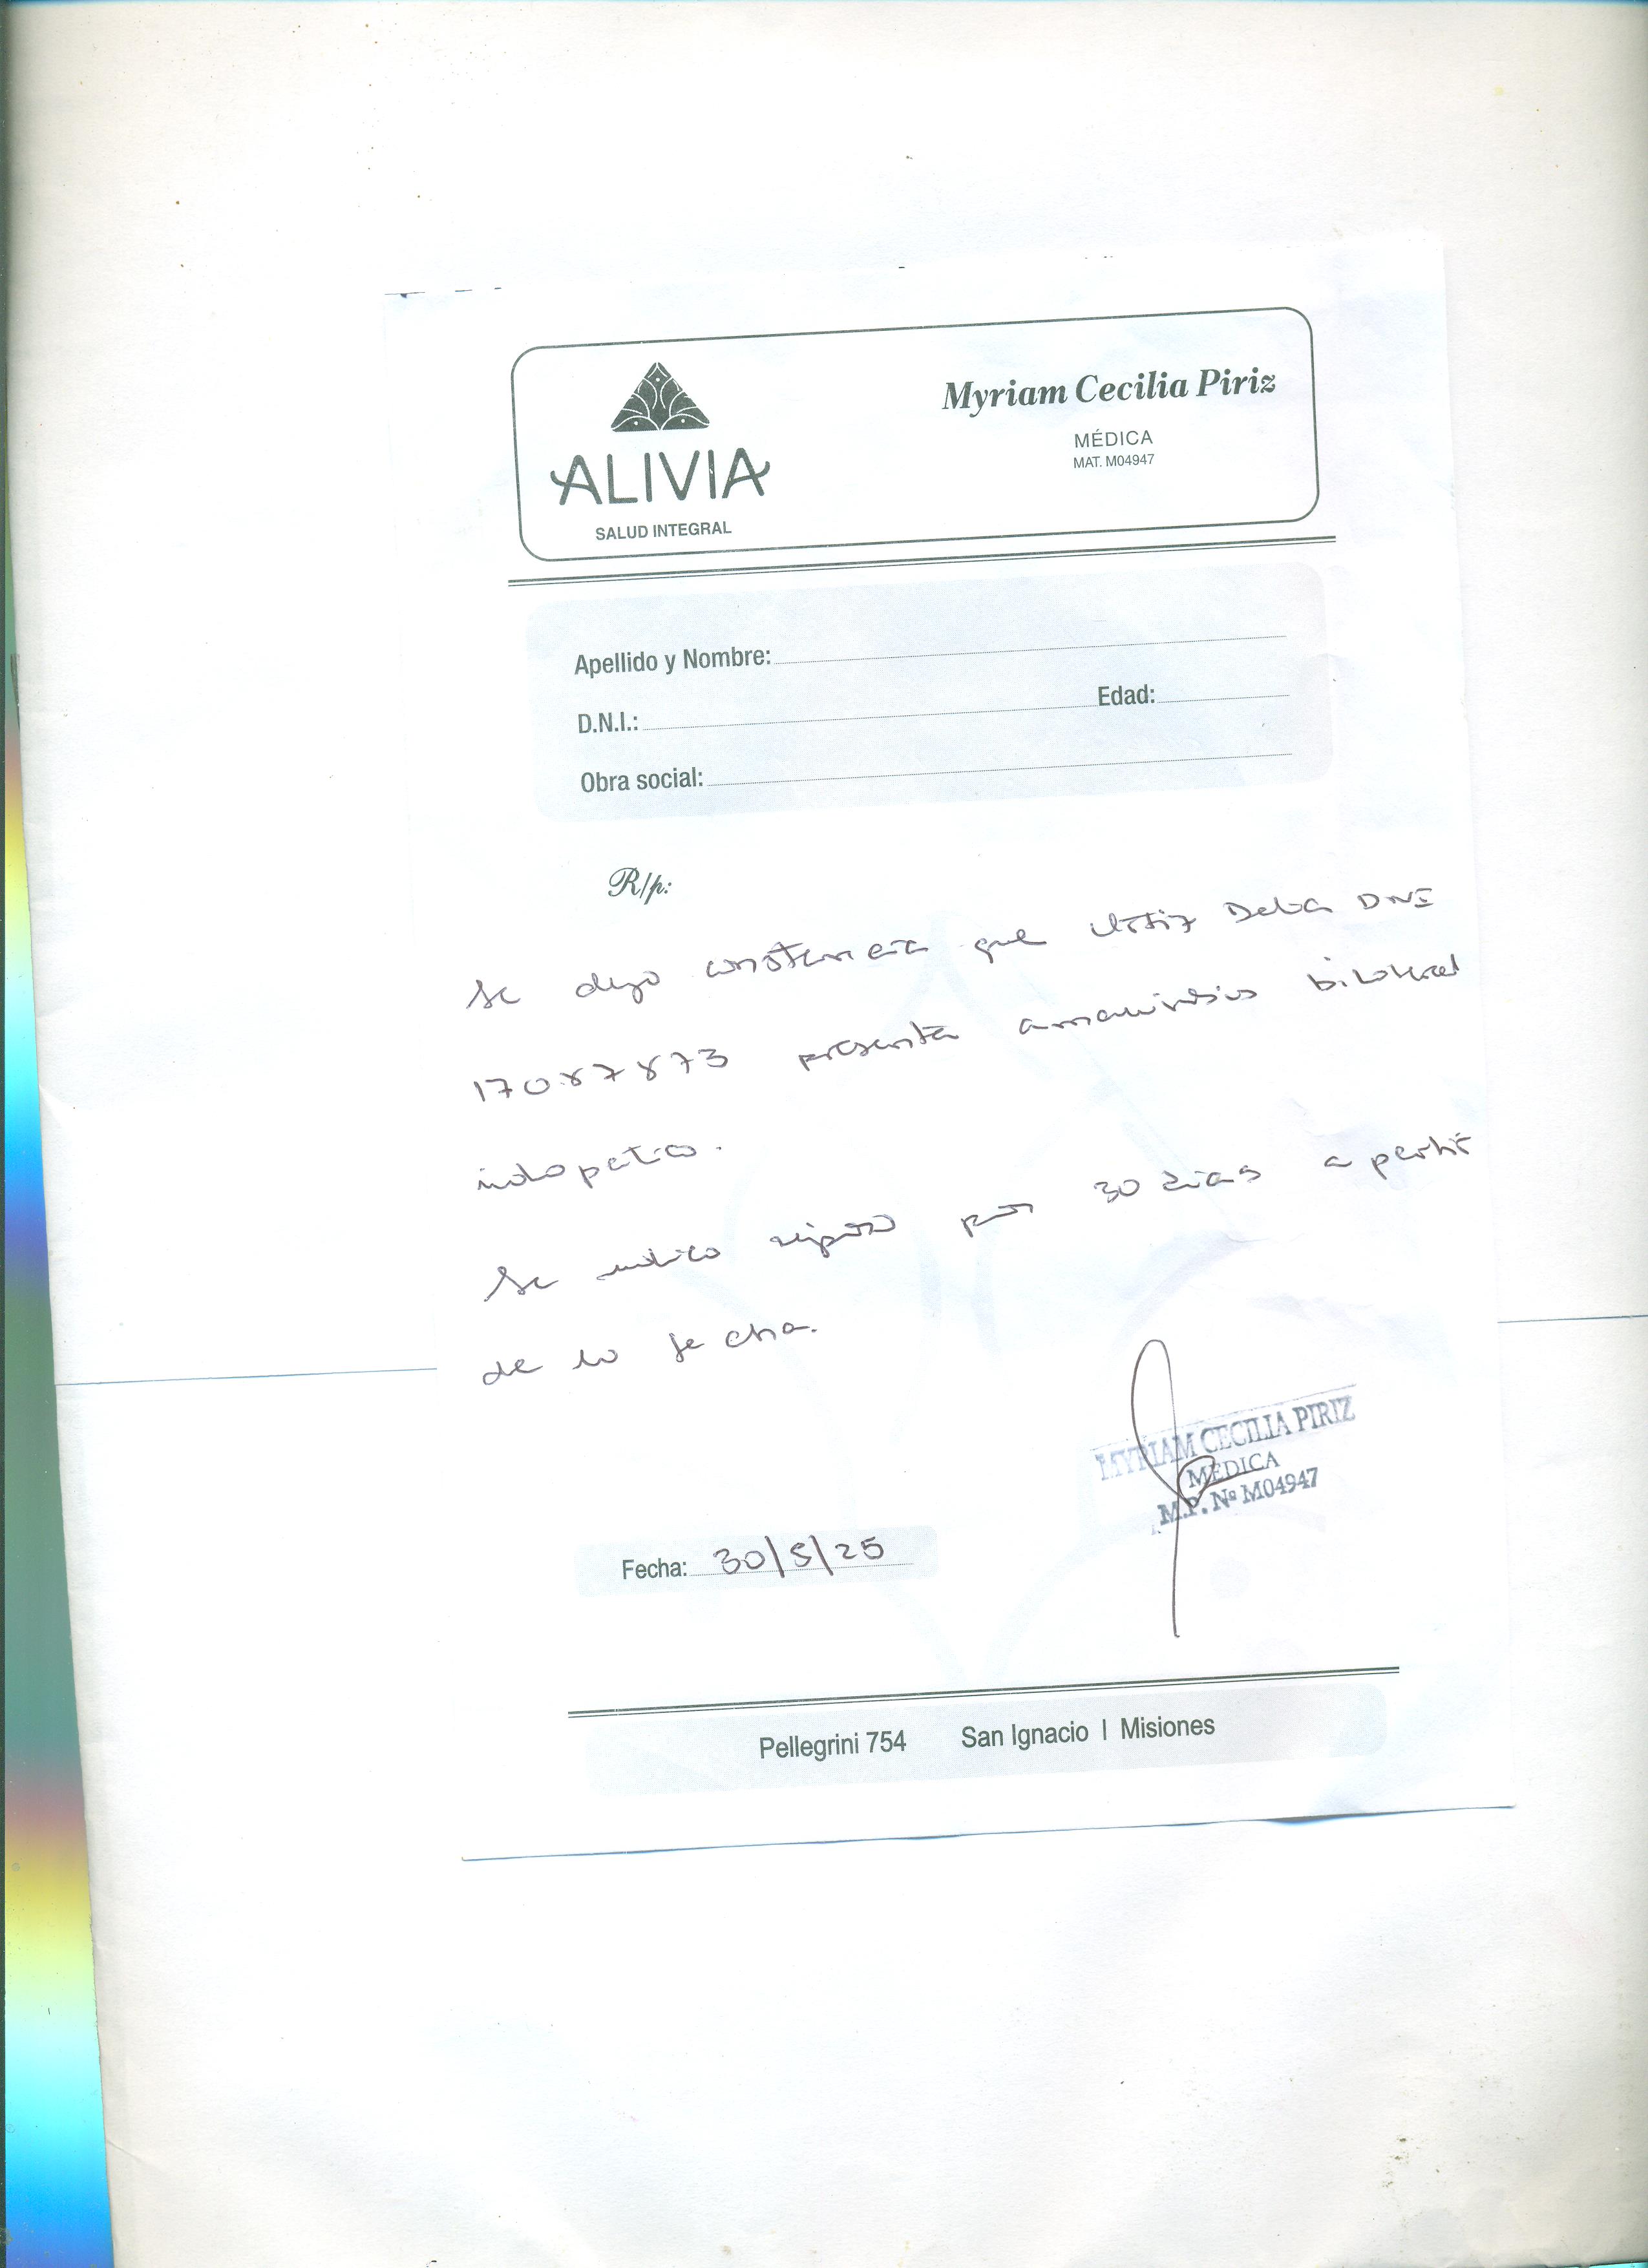 ALIVIA
SALUD INTEGRAL
Myriam Cecilia Piriz
MÉDICA
MAT. M04947
Apellido y Nombre:
D.N.I.:
Edad:
Obra social:
R/p:
Se dejo constancia que Delia DNI
17087873 presenta bilateral
idiopatica.
Se indico reposo por 30 dias a partir
de la fecha.
MYRIAM CECILIA PIRIZ
MÉDICA
M.P. Nº M04947
Fecha: 30/5/25
Pellegrini 754 San Ignacio | Misiones